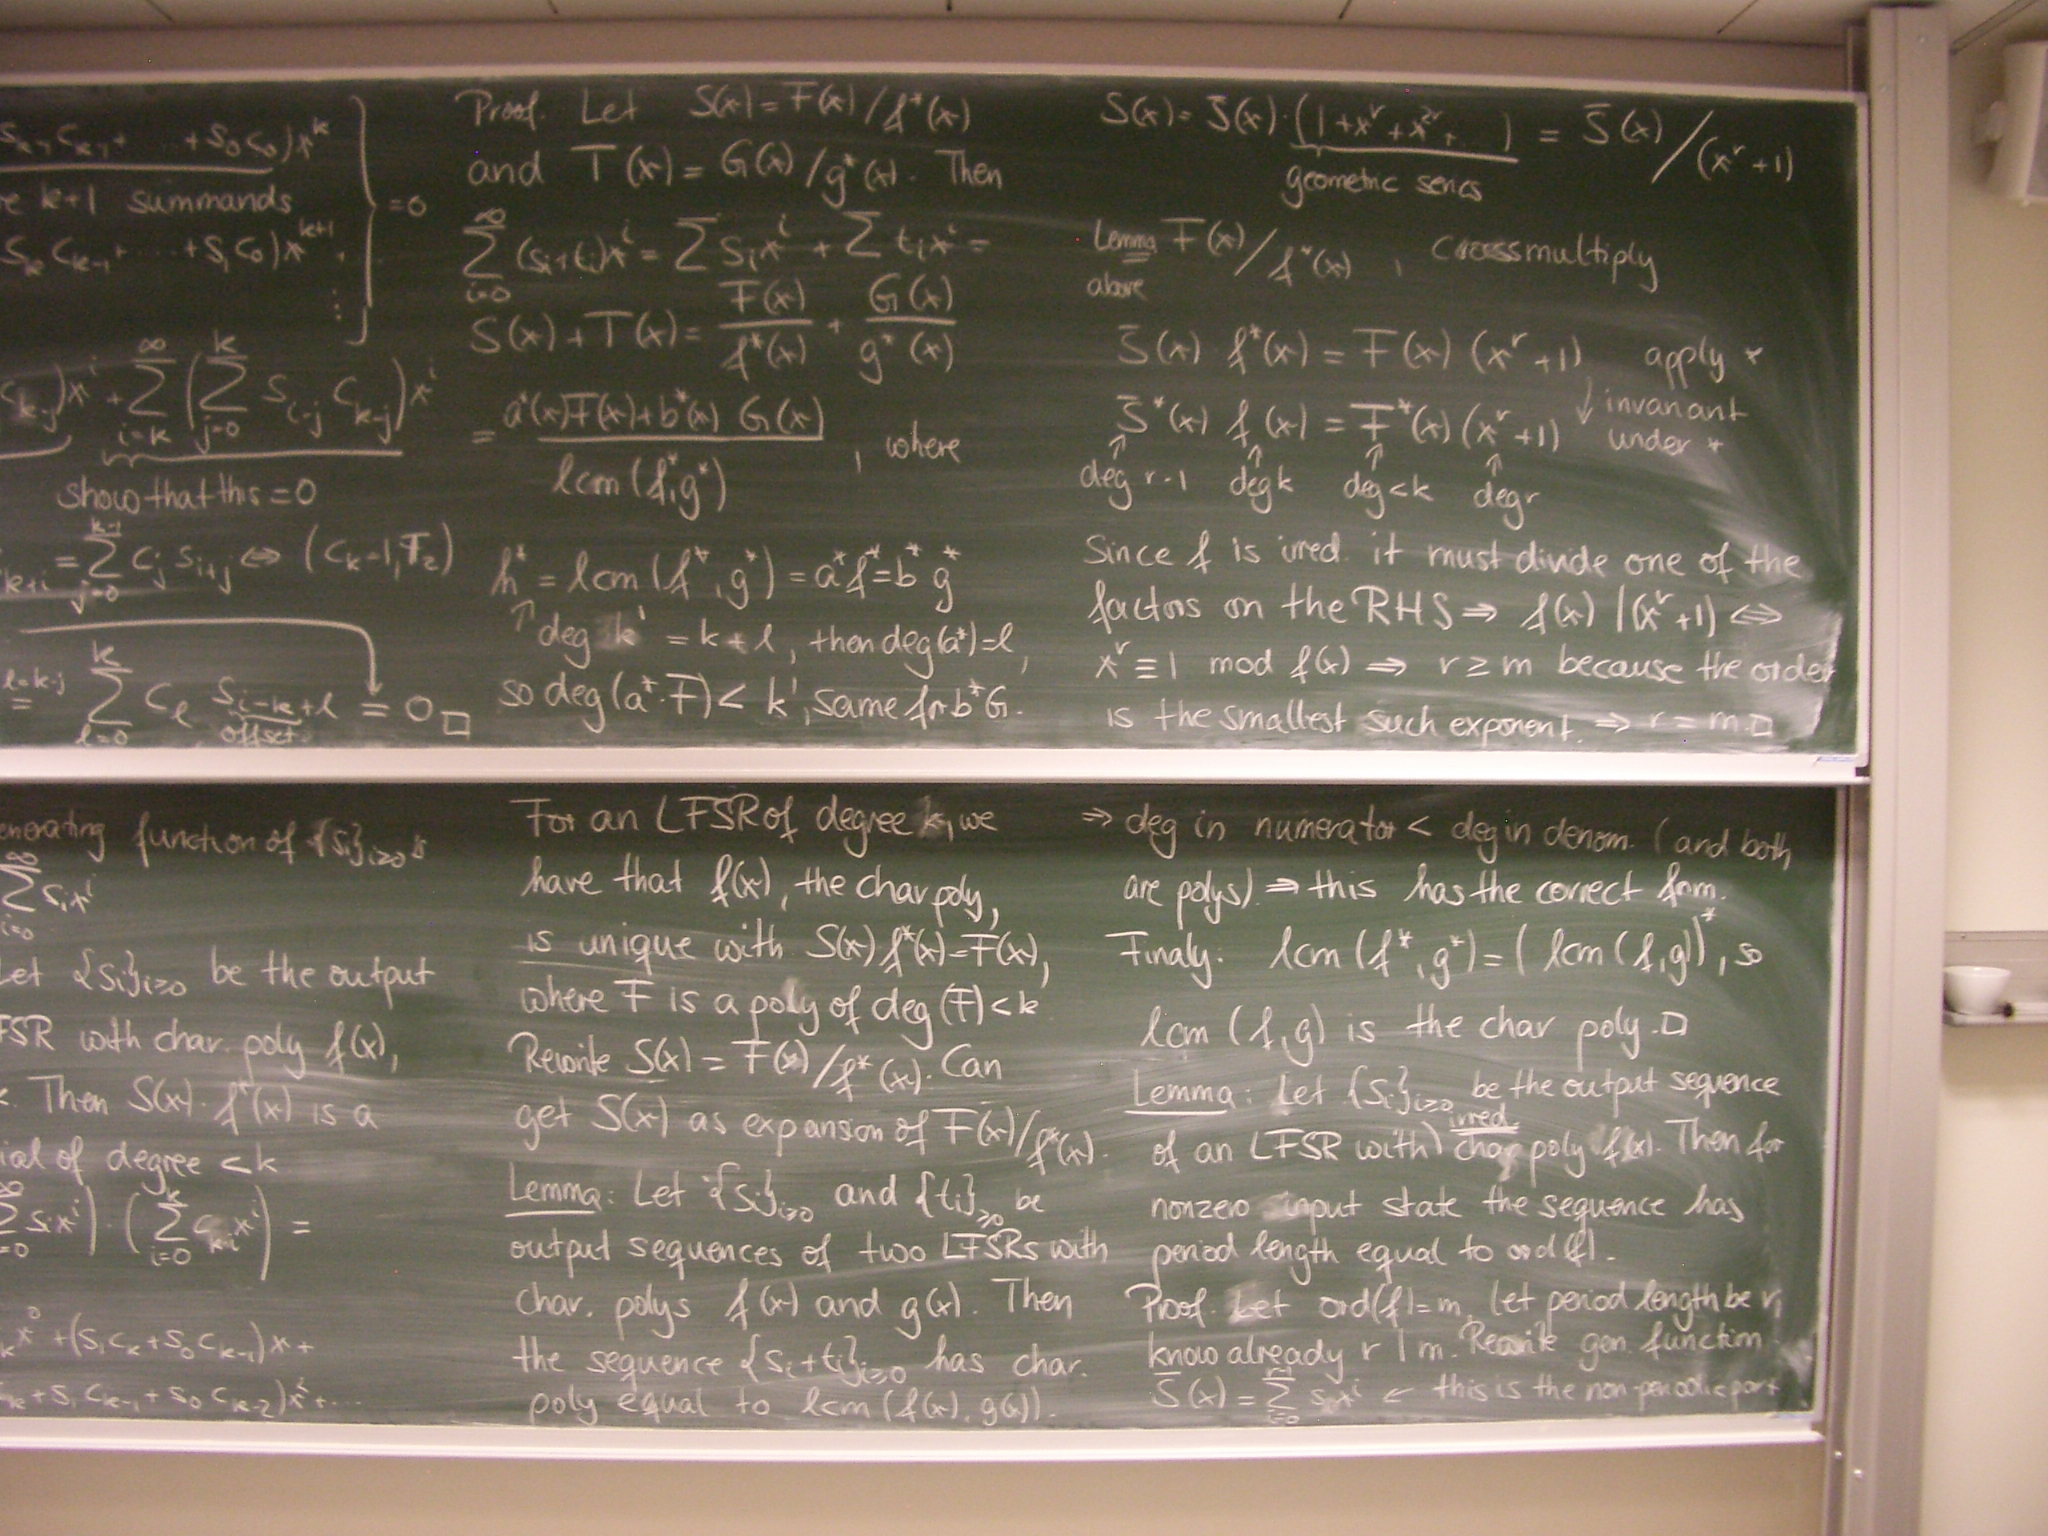 S_{k-1}C_{k-1}+ ... +S_0C_0)x^k
re k+1 summands
S_kC_{k-1}+ ... +S_1C_0)x^{k+1}+
⋮
} =0
C_{k-j})x^i + ∑_{i=k}^∞ (∑_{j=0}^k S_{i-j} C_{k-j})x^i
show that this = 0
k+i = ∑_{j=0}^{k-1} C_j S_{i+j} ⇔ (C_k=1, F_2)
l=k-j
= ∑_{l=0}^k C_l S_{i-k+l} = 0 □
offset
Proof. Let S(x) = F(x)/f*(x)
and T(x) = G(x)/g*(x). Then
∑_{i=0}^∞ (s_i+t_i)x^i = ∑ s_i x^i + ∑ t_i x^i =
S(x)+T(x) = F(x)/f*(x) + G(x)/g*(x)
= (a*(x)F(x)+b*(x) G(x)) / lcm(f*,g*) , where
h* = lcm(f*,g*) = a*f* = b*g*
↑ deg k' = k+l, then deg(a*)=l,
so deg(a*·F) < k', same for b*G.
S(x) = S̄(x)·(1+x^r+x^{2r}+ ) = S̄(x)/(x^r+1)
geometric series
Lemma F(x)/f*(x) , crossmultiply
above
S̄(x) f*(x) = F(x) (x^r+1) apply *
S̄*(x) f(x) = F*(x) (x^r+1) ↓ invariant
under *
↑ ↑ ↑ ↑
deg r-1 deg k deg<k deg r
Since f is irred. it must divide one of the
factors on the RHS ⇒ f(x) | (x^r+1) ⇔
x^r ≡ 1 mod f(x) ⇒ r ≥ m because the order
is the smallest such exponent. ⇒ r = m. □
enerating function of {s_i}_{i≥0} is
∑_{i=0}^∞ s_i x^i
Let {s_i}_{i≥0} be the output
FSR with char. poly f(x),
Then S(x)·f*(x) is a
ial of degree < k
∑_{i=0}^∞ s_i x^i)·(∑_{i=0}^k C_{k-i} x^i) =
k x^0 + (S_1C_k+S_0C_{k-1})x+
k+S_1C_{k-1}+S_0C_{k-2})x^2+...
For an LFSR of degree k, we
have that f(x), the char poly,
is unique with S(x)f*(x)=F(x),
where F is a poly of deg(F)<k
Rewrite S(x) = F(x)/f*(x). Can
get S(x) as expansion of F(x)/f*(x).
Lemma: Let {s_i}_{i≥0} and {t_i}_{≥0} be
output sequences of two LFSRs with
char. polys f(x) and g(x). Then
the sequence {s_i+t_i}_{i≥0} has char.
poly equal to lcm(f(x), g(x)).
⇒ deg in numerator < deg in denom. (and both
are polys) ⇒ this has the correct form.
Finaly: lcm(f*,g*) = (lcm(f,g))*, so
lcm(f,g) is the char poly. □
Lemma: Let {s_i}_{i≥0} be the output sequence
of an LFSR with irred. char poly f(x). Then for
nonzero input state the sequence has
period length equal to ord(f).
Proof. Let ord(f)=m, let period length be r,
know already r | m. Rewrite gen. function
S̄(x) = ∑_{i=0}^{r-1} s_i x^i ← this is the non-periodic part